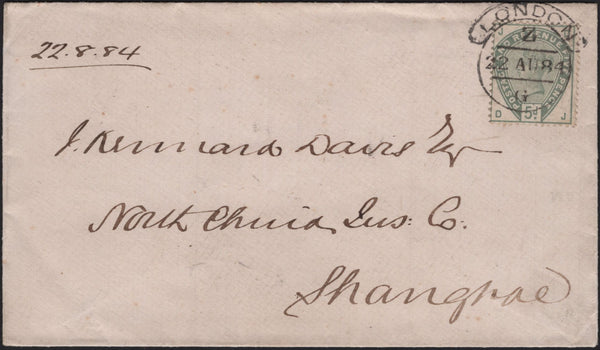 22.8.84
LONDON
Z
22 AU 84
G
POSTAGE AND REVENUE
D 5d J
J. Kennard Davis Esq
North China Ins: Co.
Shanghae